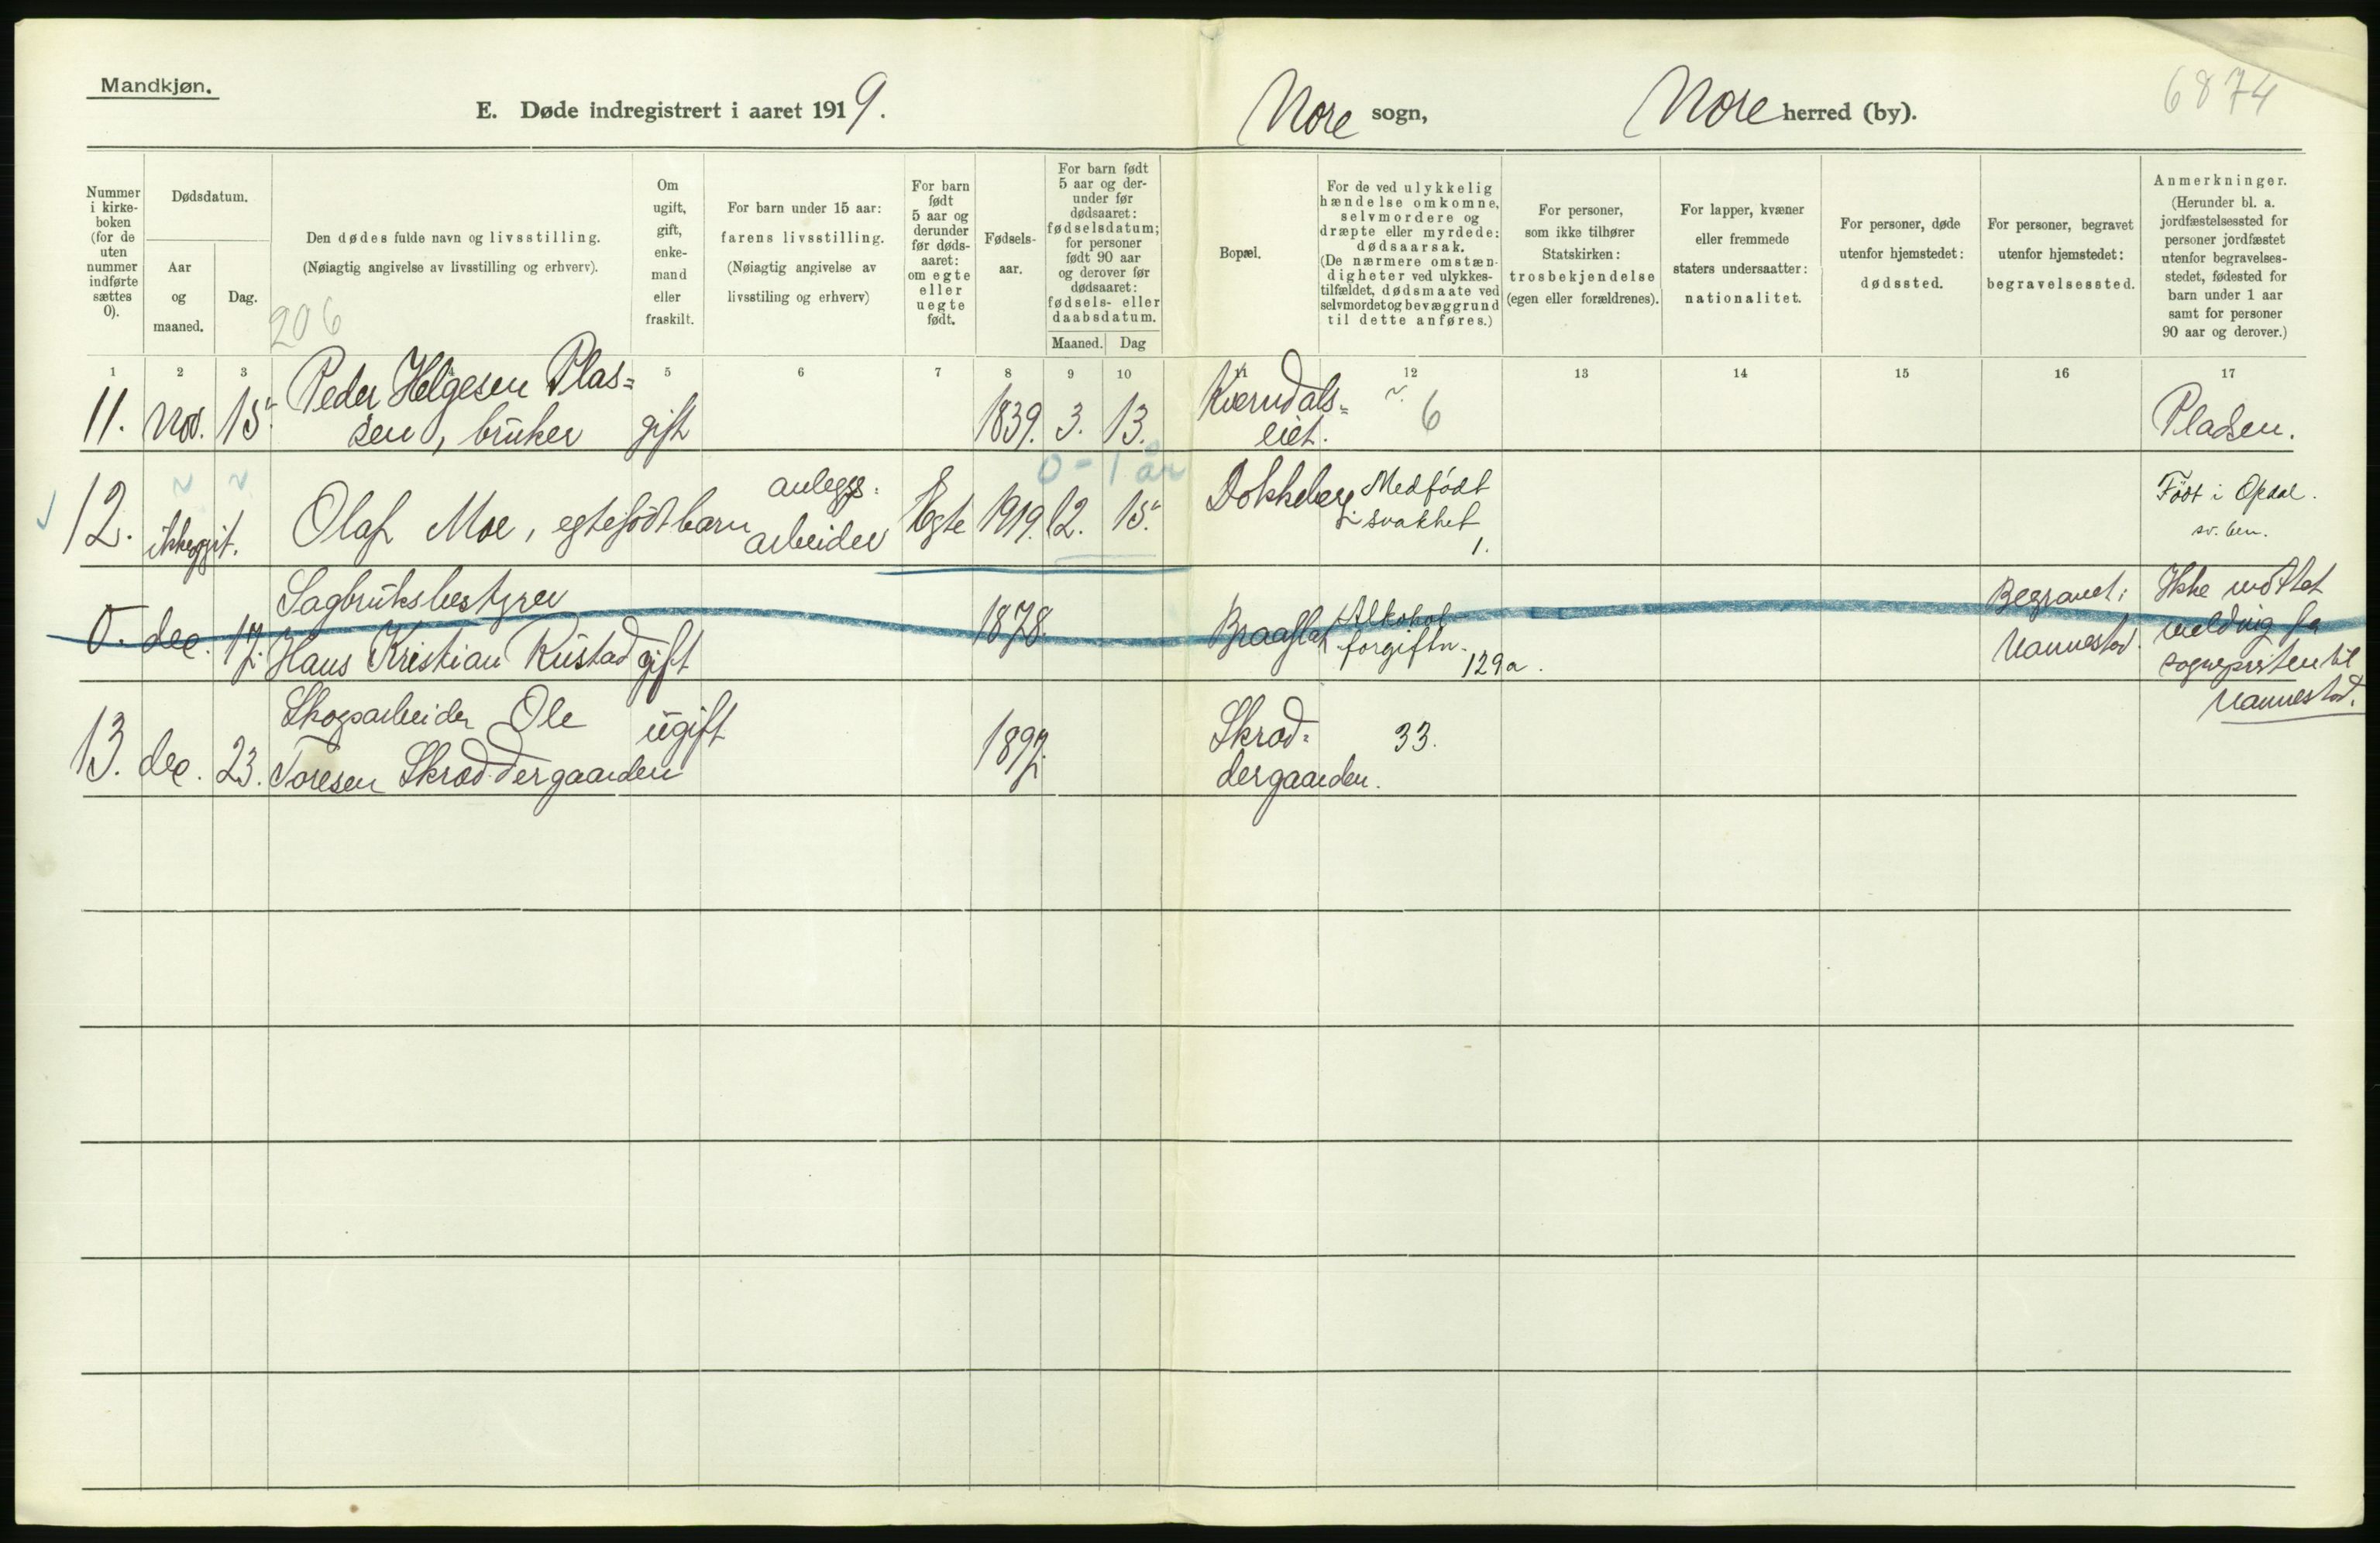 Mandkjøn.
E. Døde indregistrert i aaret 1919.
Nore sogn,
Nore herred (by).
6874
Nummer
i kirke-
boken
(for de
uten
nummer
indførte
sættes
0).
Dødsdatum.
Aar
og
maaned.
Dag.
Den dødes fulde navn og livsstilling.
(Nøiagtig angivelse av livsstilling og erhverv).
206
Om
ugift,
gift,
enke-
mand
eller
fraskilt.
For barn under 15 aar:
farens livsstilling.
(Nøiagtig angivelse av
livsstiling og erhverv)
For barn
født
5 aar og
derunder
før døds-
aaret:
om egte
eller
uegte
født.
Fødsels-
aar.
For barn født
5 aar og der-
under før
dødsaaret:
fødselsdatum;
for personer
født 90 aar
og derover før
dødsaaret:
fødsels- eller
daabsdatum.
Maaned.
Dag
Bopæl.
For de ved ulykkelig
hændelse omkomne,
selvmordere og
dræpte eller myrdede:
dødsaarsak.
(De nærmere omstæn-
digheter ved ulykkes-
tilfældet, dødsmaate ved
selvmordet og bevæggrund
til dette anføres.)
For personer,
som ikke tilhører
Statskirken:
trosbekjendelse
(egen eller forældrenes).
For lapper, kvæner
eller fremmede
staters undersaatter:
nationalitet.
For personer, døde
utenfor hjemstedet:
dødssted.
For personer, begravet
utenfor hjemstedet:
begravelsessted.
Anmerkninger.
(Herunder bl. a.
jordfæstelsessted for
personer jordfæstet
utenfor begravelses-
stedet, fødested for
barn under 1 aar
samt for personer
90 aar og derover.)
1 2 3 4 5 6 7 8 9 10 11 12 13 14 15 16 17
11. Nov. 15. Peder Helgesen Plas=
sen, bruker gift 1839. 3. 13. Kverndals=
eiet. 6 Pladsen.
0-1 år
12. ikke opgit. Olaf Moe, egtefødt barn anleggs=
arbeider Egte 1919. 12. 15. Dokkeberg Medfødt
svakhet
1. Født i Opdal.
sv. ben.
0. dec. 17. Sagbruksbestyrer
Hans Kristian Rustad gift 1878. Braaflat Alkohol-
forgiftn.
129a. Begravet i
Nannestad. Ikke mottat
melding fra
sognepresten til
Nannestad.
13. dec. 23. Skogsarbeider Ole
Toresen Skroddergaarden ugift 1897. Skrod=
dergaarden. 33.